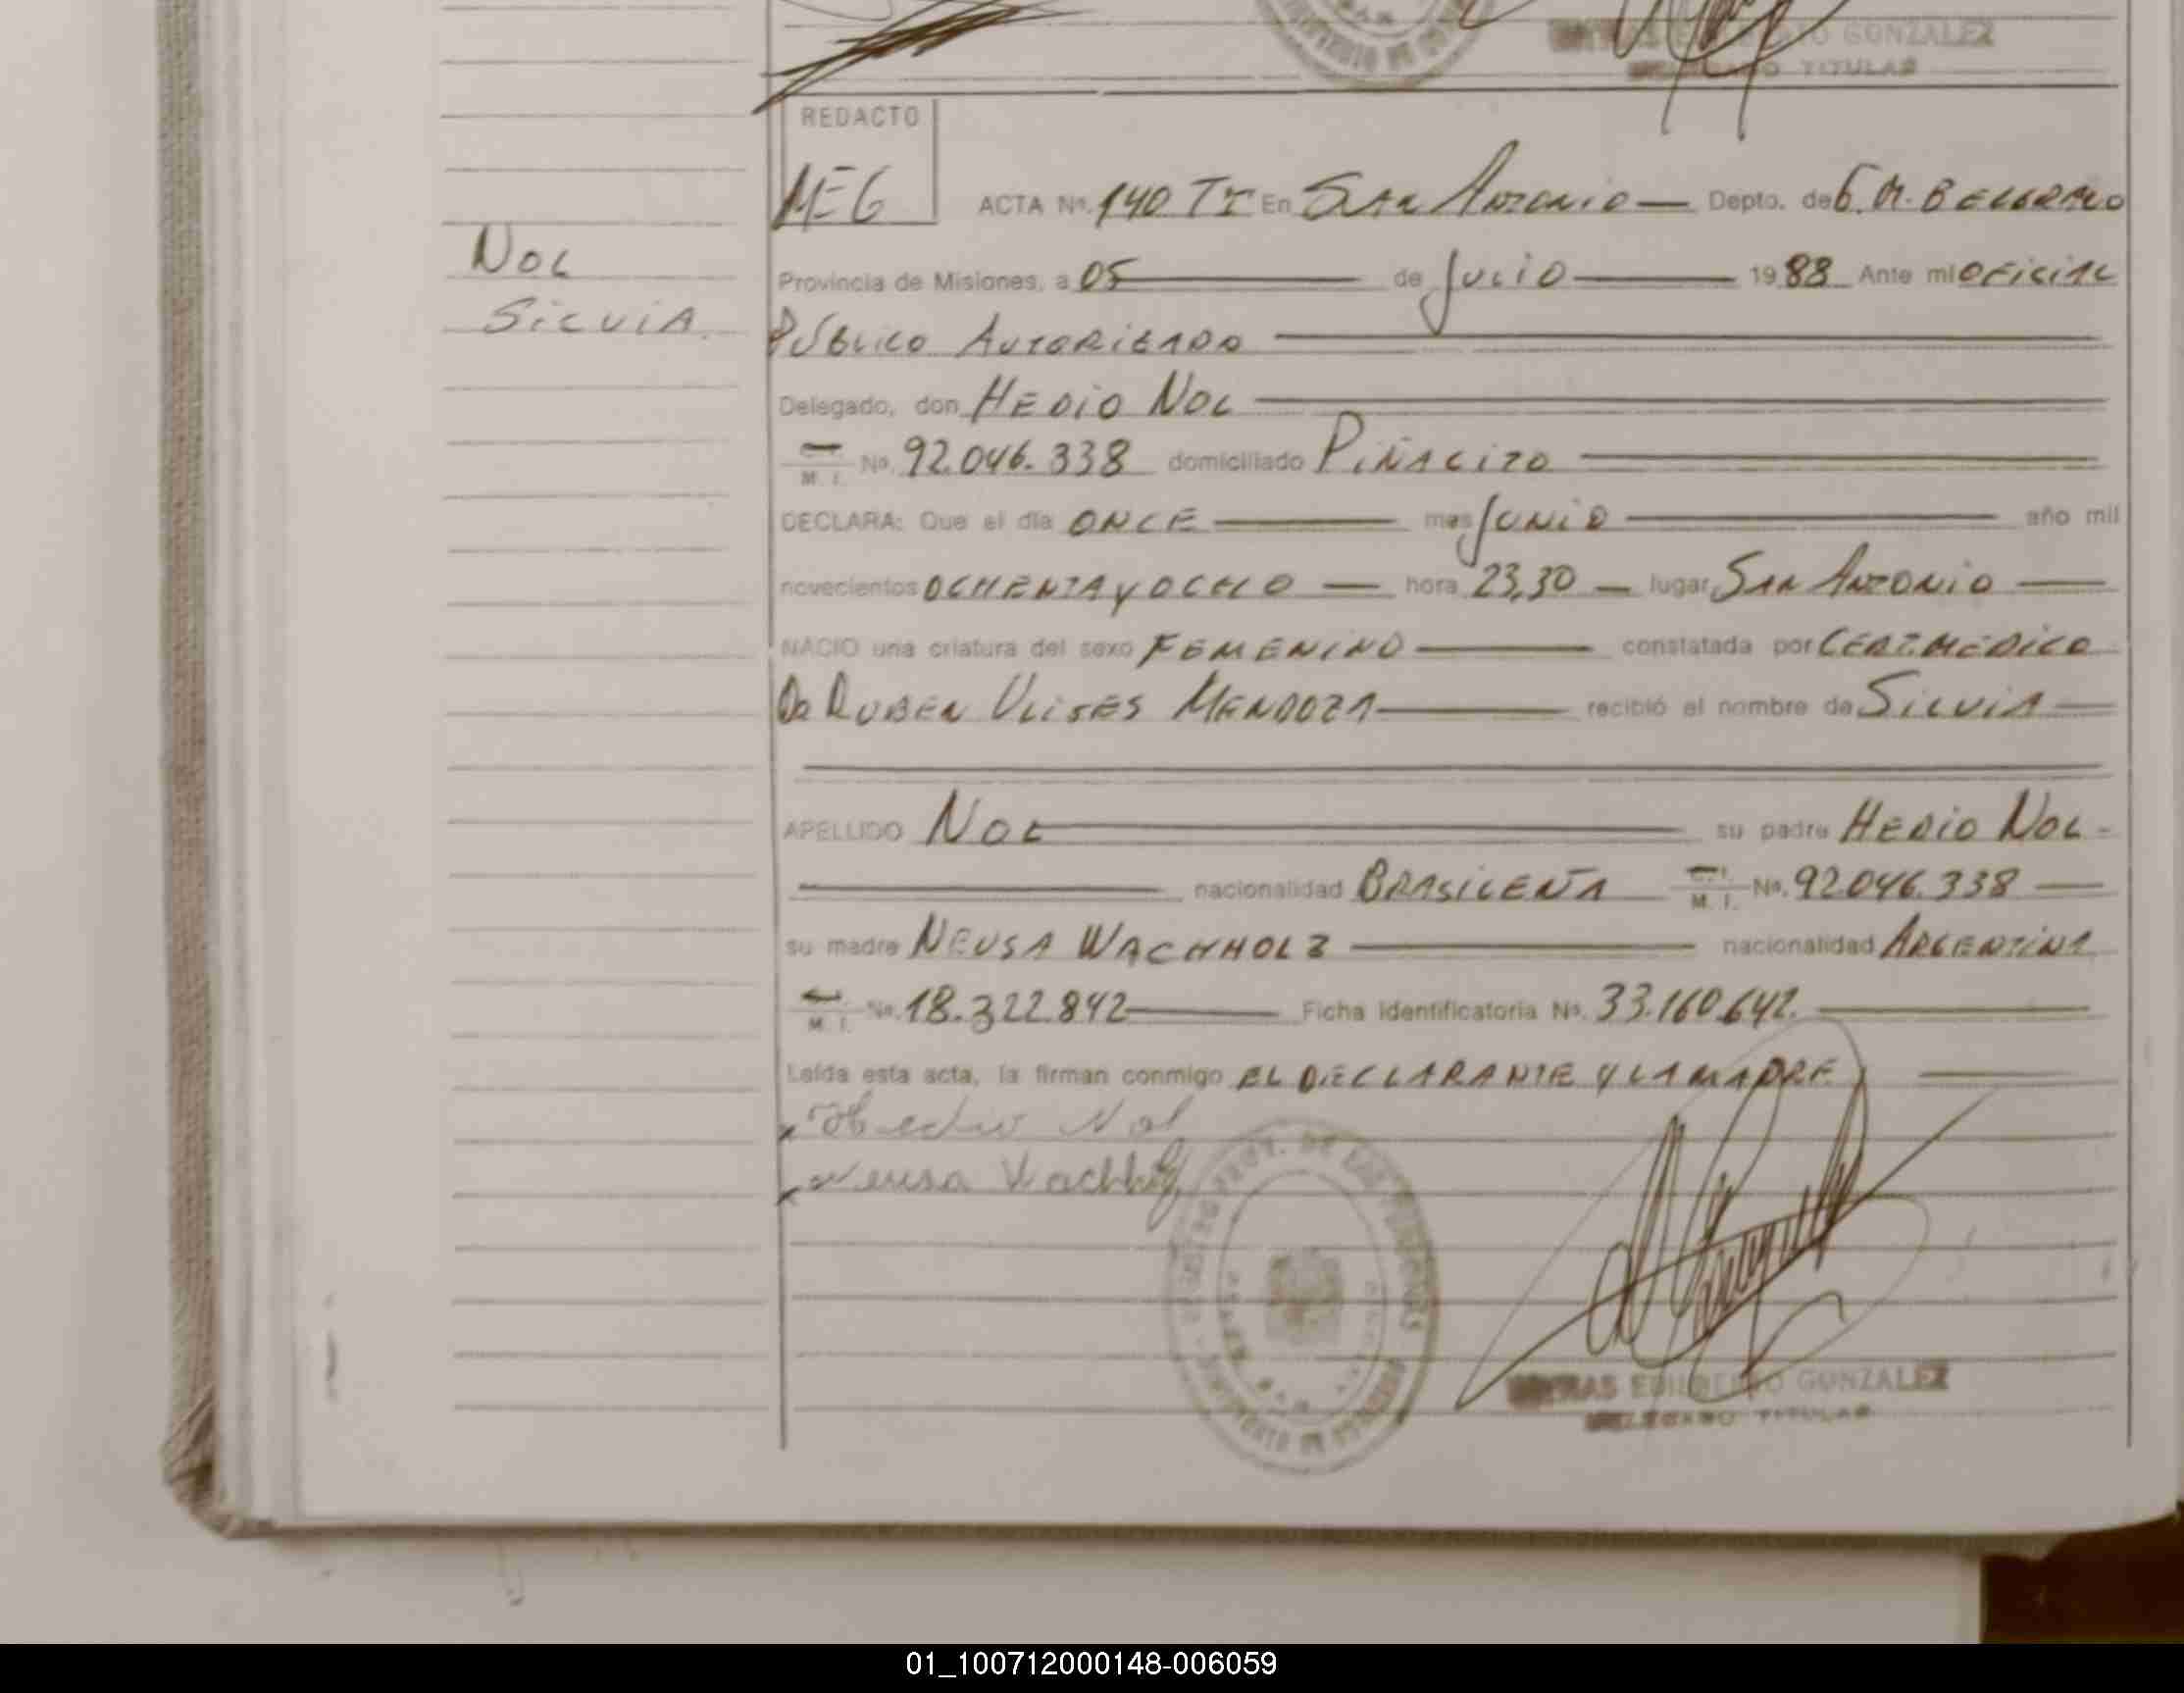 GONZALEZ
TITULAR
REDACTO
MEG
ACTA Nº. 140 TI En SAN ANTONIO — Depto. de G. M. BELGRANO
NOL
SILVIA
Provincia de Misiones, a 05 de JULIO 1988 Ante mi OFICIAL
PÚBLICO AUTORIZADO
Delegado, don HEDIO NOL
M. I. Nº. 92.046.338 domiciliado PIÑALITO
DECLARA: Que el día ONCE mes JUNIO año mil
novecientos OCHENTA Y OCHO — hora 23,30 — lugar SAN ANTONIO
NACIO una criatura del sexo FEMENINO constatada por CERT. MEDICO
DR RUBEN ULISES MENDOZA recibió el nombre de SILVIA
APELLIDO NOL su padre HEDIO NOL
nacionalidad BRASILEÑA C. I. M. I. Nº. 92.046.338
su madre NEUSA WACHHOLZ nacionalidad ARGENTINA
M. I. Nº. 18.322.842 Ficha Identificatoria Nº. 33.160.642.
Leída esta acta, la firman conmigo EL DECLARANTE Y LA MADRE
x Hedio Nol
x Neusa Wachholz
EDILBERTO GONZALEZ
DELEGADO TITULAR
01_100712000148-006059